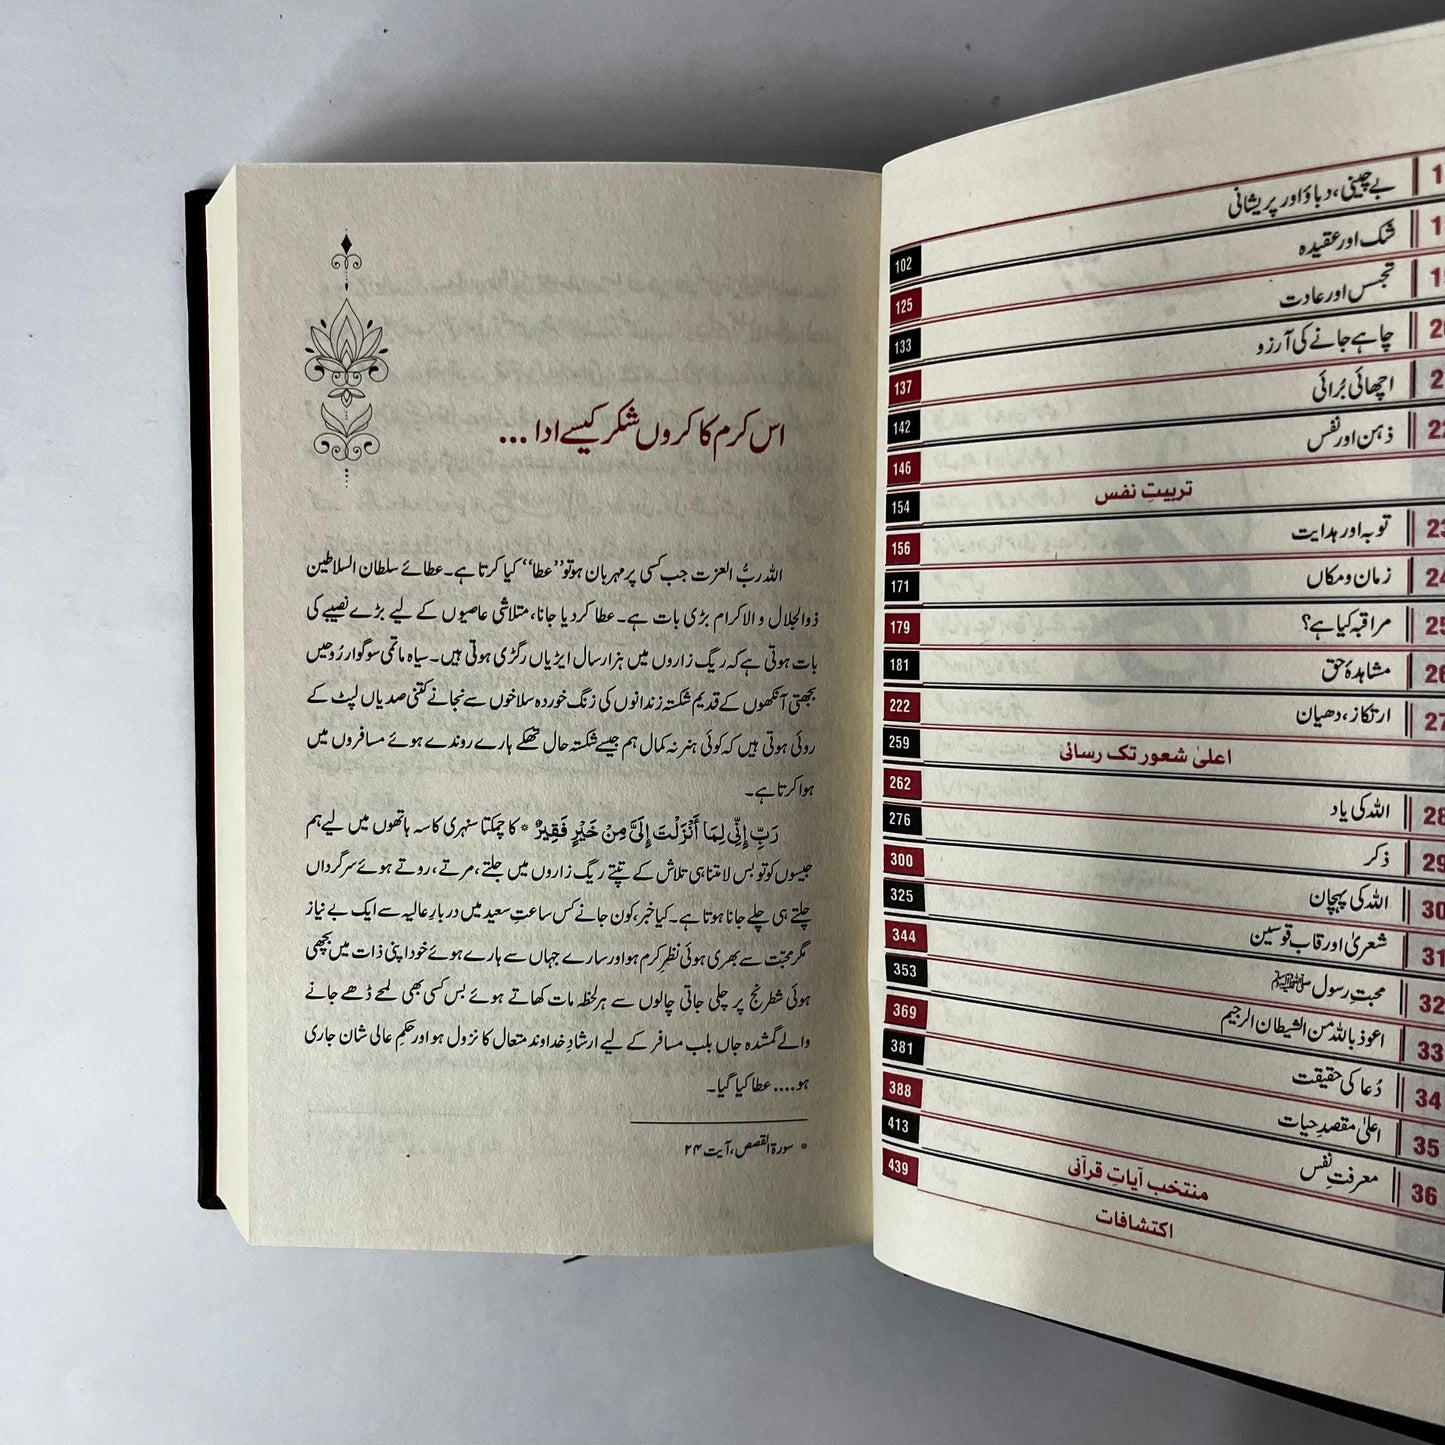 بے چینی، دباؤ اور پریشانی
102 شک اور عقیدہ
125 تجسس اور عادت
133 چاہے جانے کی آرزو
137 اچھائی بُرائی
142 ذہن اور نفس
146
154 تربیتِ نفس
156 توبہ اور ہدایت 23
171 زمان و مکاں 24
179 مراقبہ کیا ہے؟ 25
181 مشاہدۂ حق 26
222 ارتکاز، دھیان 27
259 اعلیٰ شعور تک رسائی
262 اللہ کی یاد 28
276 ذکر 29
300 اللہ کی پہچان 30
325 شعریٰ اور قاب قوسین 31
344 محبتِ رسول ﷺ 32
353 اعوذ باللہ من الشیطان الرجیم 33
369 دُعا کی حقیقت 34
381 اعلیٰ مقصدِ حیات 35
388 معرفتِ نفس 36
413 منتخب آیاتِ قرآنی
439 اکتشافات
اس کرم کا کروں شکر کیسے ادا ...
اللہ ربُّ العزت جب کسی پر مہربان ہو تو ’’عطا‘‘ کیا کرتا ہے۔ عطائے سلطان السلاطین
ذوالجلال و الاکرام بڑی بات ہے۔ عطا کر دیا جانا، متلاشی عاصیوں کے لیے بڑے نصیبے کی
بات ہوتی ہے کہ ریگ زاروں میں ہزار سال ایڑیاں رگڑی ہوتی ہیں۔ سیاہ ماتمی سوگوار رُوحیں
بجھتی آنکھوں کے قدیم شکستہ زندانوں کی زنگ خوردہ سلاخوں سے نجانے کتنی صدیاں لپٹ کے
روئی ہوتی ہیں کہ کوئی ہنر نہ کمال ہم جیسے شکستہ حال تھکے ہارے روندے ہوئے مسافروں میں
ہوا کرتا ہے۔
رَبِّ إِنِّی لِمَا أَنْزَلْتَ إِلَیَّ مِنْ خَیْرٍ فَقِیرٌ * کا چمکتا سنہری کاسہ ہاتھوں میں لیے ہم
جیسوں کو تو بس لامتناہی تلاش کے تپتے ریگ زاروں میں جلتے، مرتے، روتے ہوئے سرگرداں
چلتے ہی چلے جانا ہوتا ہے۔ کیا خبر، کون جانے کس ساعتِ سعید میں دربارِ عالیہ سے ایک بے نیاز
مگر محبّت سے بھری ہوئی نظرِ کرم ہو اور سارے جہاں سے ہارے ہوئے خود اپنی ذات میں بچھی
ہوئی شطرنج پر چلی جاتی چالوں سے ہر لحظہ مات کھاتے ہوئے بس کسی بھی لمحے ڈھے جانے
والے گمشدہ جاں بلب مسافر کے لیے ارشادِ خداوند متعال کا نزول ہو اور حکمِ عالی شان جاری
ہو.... عطا کیا گیا۔
* سورۃ القصص، آیت ۲۴